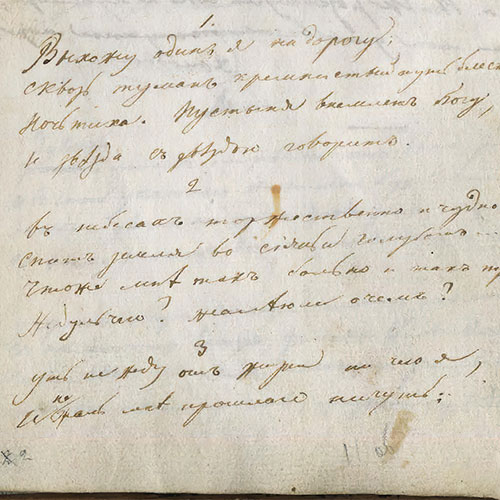 1.
Выхожу один я на дорогу;
Сквозь туман кремнистый путь блес
Ночь тиха. Пустыня внемлет Богу,
И звѣзда съ звѣздою говоритъ.
2
Въ небесахъ торжественно и чудно
Спитъ земля въ сіяньи голубомъ...
Что же мнѣ такъ больно и такъ тр
Жду ль чего? жалѣю ли о чемъ?
3
Ужъ не жду отъ жизни ничего я,
И не жаль мнѣ прошлаго ничуть;
2